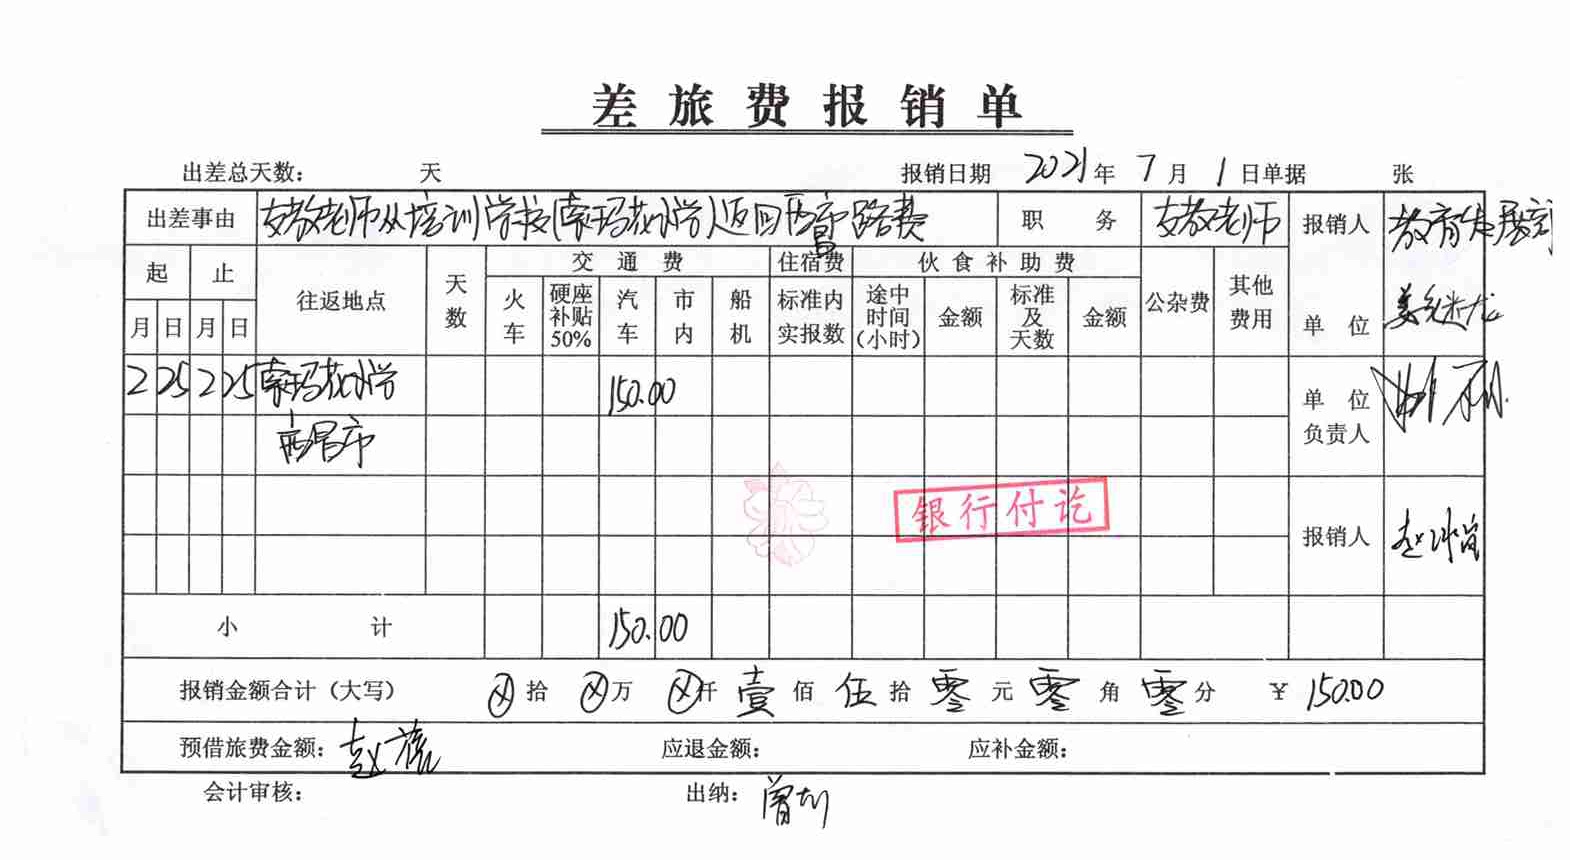 差旅费报销单
出差总天数： 天 报销日期 2021年 7月 1日单据 张
出差事由 支教老师从培训学校(索玛花小学)返回西昌市路费 职务 支教老师 报销人 教育发展部
起 止 往返地点 天数 交通费 住宿费 伙食补助费 公杂费 其他费用 单位
月 日 月 日 火车 硬座补贴50% 汽车 市内 船机 标准内实报数 途中时间(小时) 金额 标准及天数 金额
2 25 2 25 索玛花小学 150.00 单位负责人
西昌市
银行付讫
报销人
小计 150.00
报销金额合计（大写） ⊗拾 ⊗万 ⊗仟 壹佰 伍拾 零元 零角 零分 ¥ 150.00
预借旅费金额： 应退金额： 应补金额：
会计审核： 出纳：